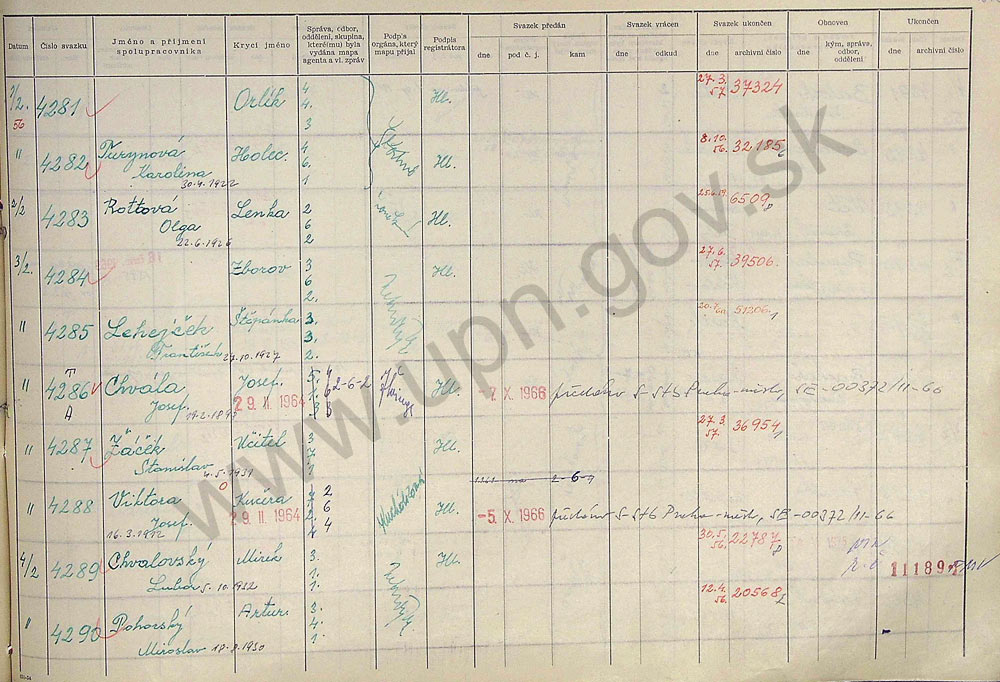 Datum
Číslo svazku
Jméno a příjmení
spolupracovníka
Krycí jméno
Správa, odbor,
oddělení, skupina,
které(mu) byla
vydána mapa
agenta a vl. zpráv
Podpis
orgána, který
mapu přijal
Podpis
registrátora
Svazek předán
dne
pod č. j.
kam
Svazek vrácen
dne
odkud
Svazek ukončen
dne
archivní číslo
Obnoven
dne
kým, správa,
odbor,
oddělení
Ukončen
dne
archivní číslo
2/2. 56 4281 Orlík 4 4. 3 Hl. 27. 3. 57. 37324
" 4282 Turynová Holec. 4 6. 1 Hl. 8. 10. 56. 32185
Karolina
30.4.1922
2/2 4283 Rottová Lenka 2 6 2 Hl. 6509
Olga
22.6.1926
3/2. 4284 Zborov 3 6 2. Hl. 27. 6. 57. 39506.
" 4285 Lehejček Štěpánka 3. 3. 2. 51206
František 27.10.1927
" 4286 T A Chvála Josef. 2-6-2 Hl. -7. X. 1966 předáno S-StB Praha-měst, SE-00372/11-66
Josef. 29. II. 1964
" 4287 Žáček Učitel Hl. 27. 3. 57. 36954
Stanislav 4.5.1931
" 4288 Viktora Kučera 2 6 4 Hl. -5. X. 1966 předáno S-StB Praha-měst, SE-00372/11-66
Josef. 29. II. 1964
16.3.1912
4/2 4289 Chvalovský Mirek 3. 1. 1. Hl. 30. 5. 56. 22787 11189
Luboš 5.10.1932
" 4290 Pohorský Artur. 3. 4. 1. 12. 4. 56. 20568
Miroslav 18.8.1930
www.upn.gov.sk